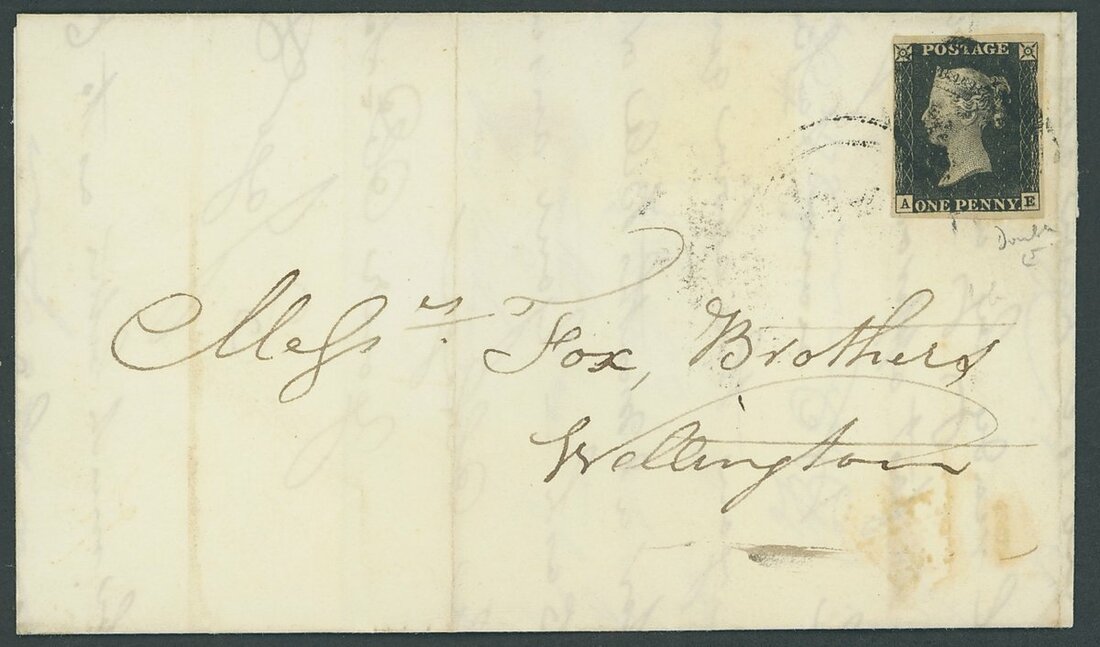 POSTAGE
A ONE PENNY. E
Double
E
Messrs. Fox, Brothers
Wellington